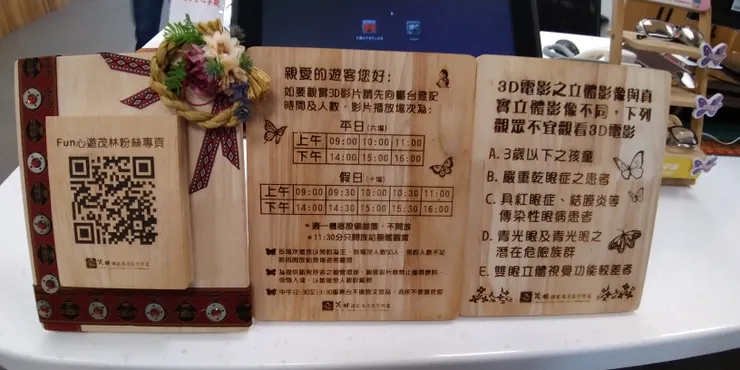 Fun心遊茂林粉絲專頁
親愛的遊客您好:
如要觀賞3D影片請先向櫃台登記
時間及人數，影片播放場次為:
平日(六場)
上午 09:00 10:00 11:00
下午 14:00 15:00 16:00
假日(十場)
上午 09:00 09:30 10:00 10:30 11:00
下午 14:00 14:30 15:00 15:30 16:00
★週一機器設備維護，不開放
★11:30分只開放給團體觀賞
3D電影之立體影像與真
實立體影像不同，下列
觀眾不宜觀看3D電影
A. 3歲以下之孩童
B. 嚴重乾眼症之患者
C. 具紅眼症、結膜炎等
傳染性眼病患者
D. 青光眼及青光眼之
潛在危險族群
E. 雙眼立體視覺功能較差者
茂林